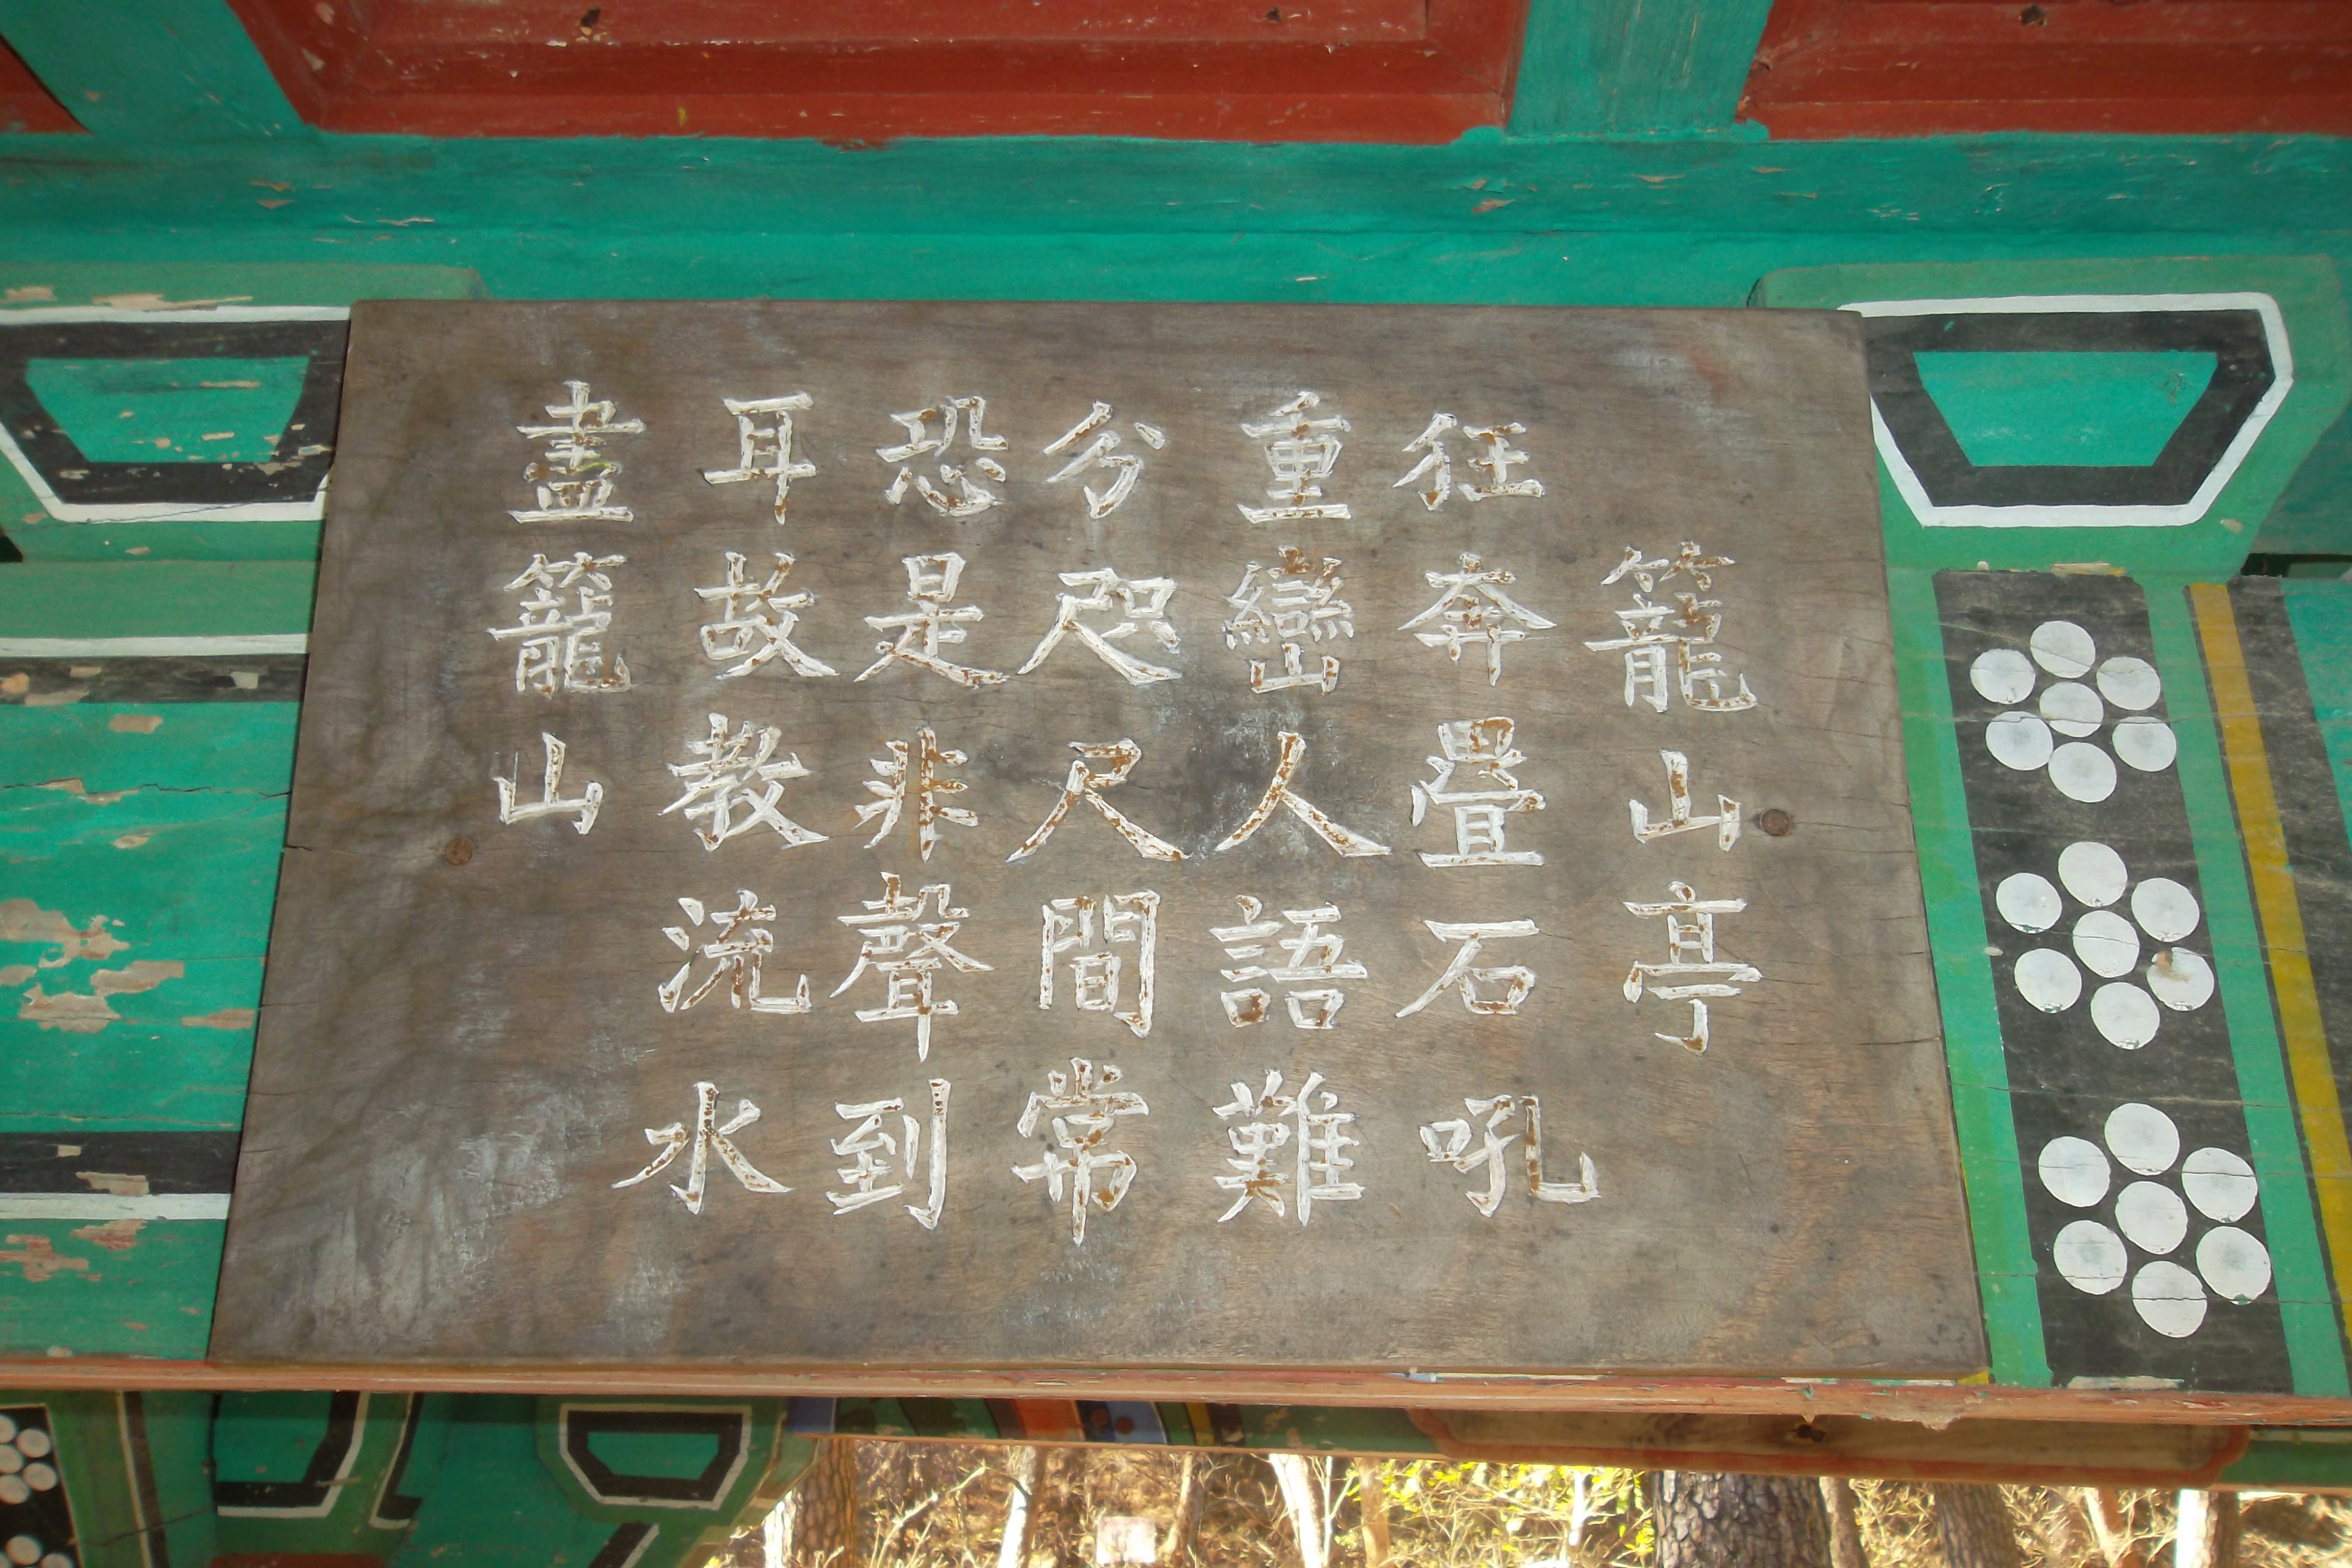 籠山亭
狂奔疊石吼
重巒人語難
分咫尺間常
恐是非聲到
耳故教流水
盡籠山